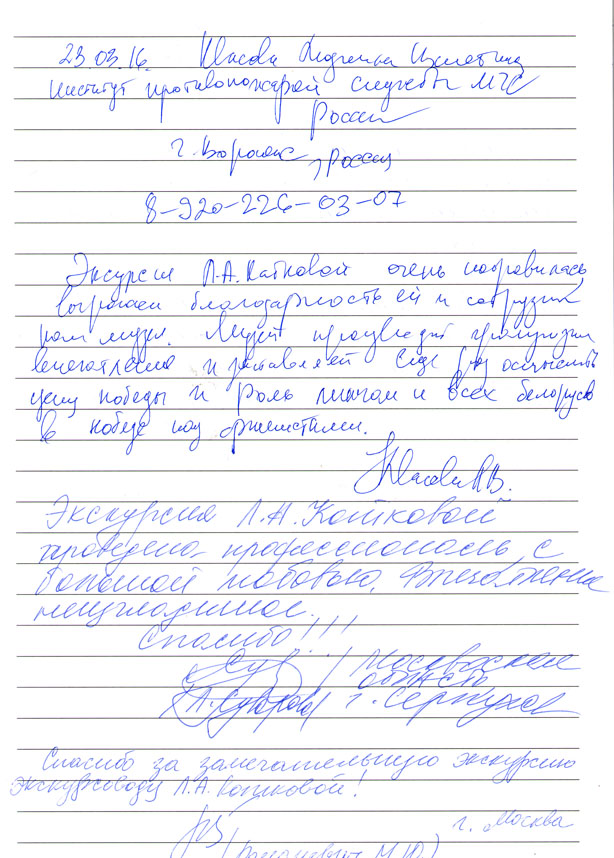 23.03.16.
институт противопожарной службы МЧС
России
г. Воронеж, Россия
8-920-226-03-07
Экскурсия Л.А. Катковой очень понравилась,
выражаем благодарность ей и сотрудни
кам музея. Музей производит
впечатление и заставляет еще раз осмыслить
цену победы и роль минчан и всех белорусов
в победе над фашистами.
Экскурсия Л.А. Катковой
проведена профессионально, с
большой любовью. Впечатление
неизгладимое.
Спасибо!!!
Московская
область
г. Серпухов
Спасибо за замечательную экскурсию
экскурсоводу Л.А. Катковой!
г. Москва
М.Ю.)